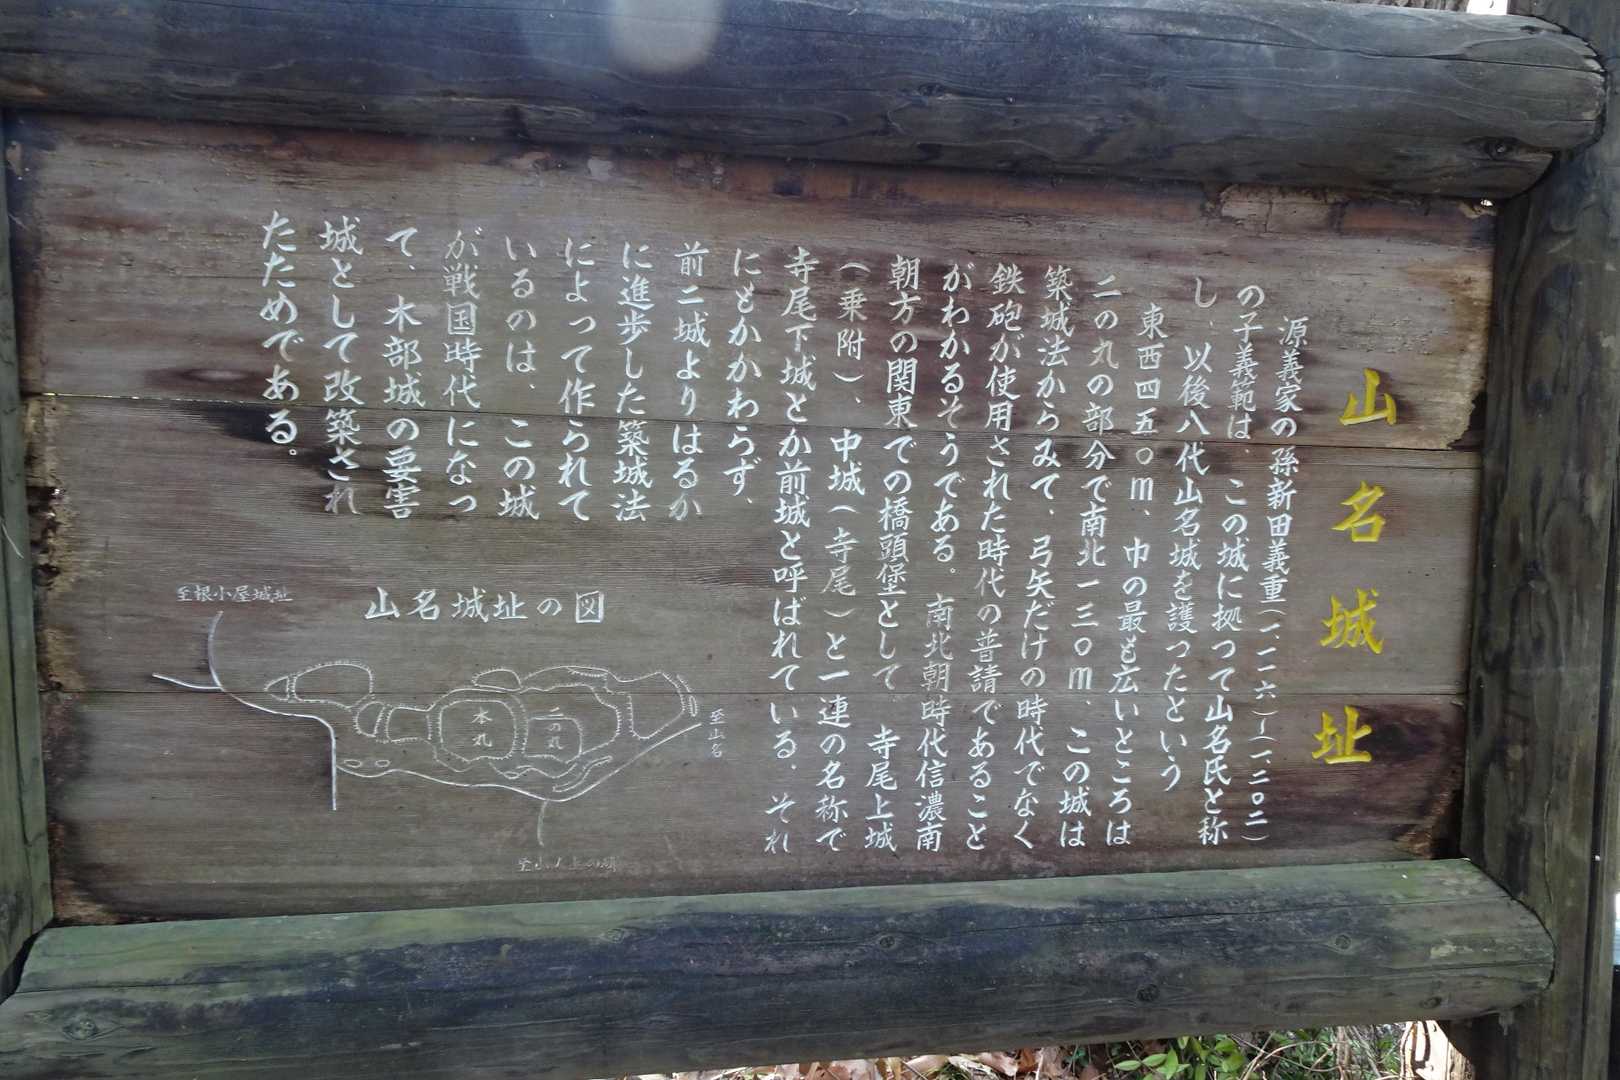 山名城址
源義家の孫新田義重(一、一一六)〜(一、二〇二)
の子義範は、この城に拠って山名氏と称
し、以後八代山名城を護ったという
東西四五〇m、巾の最も広いところは
二の丸の部分で南北一三〇m、この城は
築城法からみて、弓矢だけの時代でなく
鉄砲が使用された時代の普請であること
がわかるそうである。南北朝時代信濃南
朝方の関東での橋頭堡として 寺尾上城
(乗附)、中城(寺尾)と一連の名称で
寺尾下城とか前城と呼ばれている、それ
にもかかわらず、
前二城よりはるか
に進歩した築城法
によって作られて
いるのは、この城
が戦国時代になっ
て、木部城の要害
城として改築され
たためである。
山名城址の図
至根小屋城址
本丸
二の丸
至山名